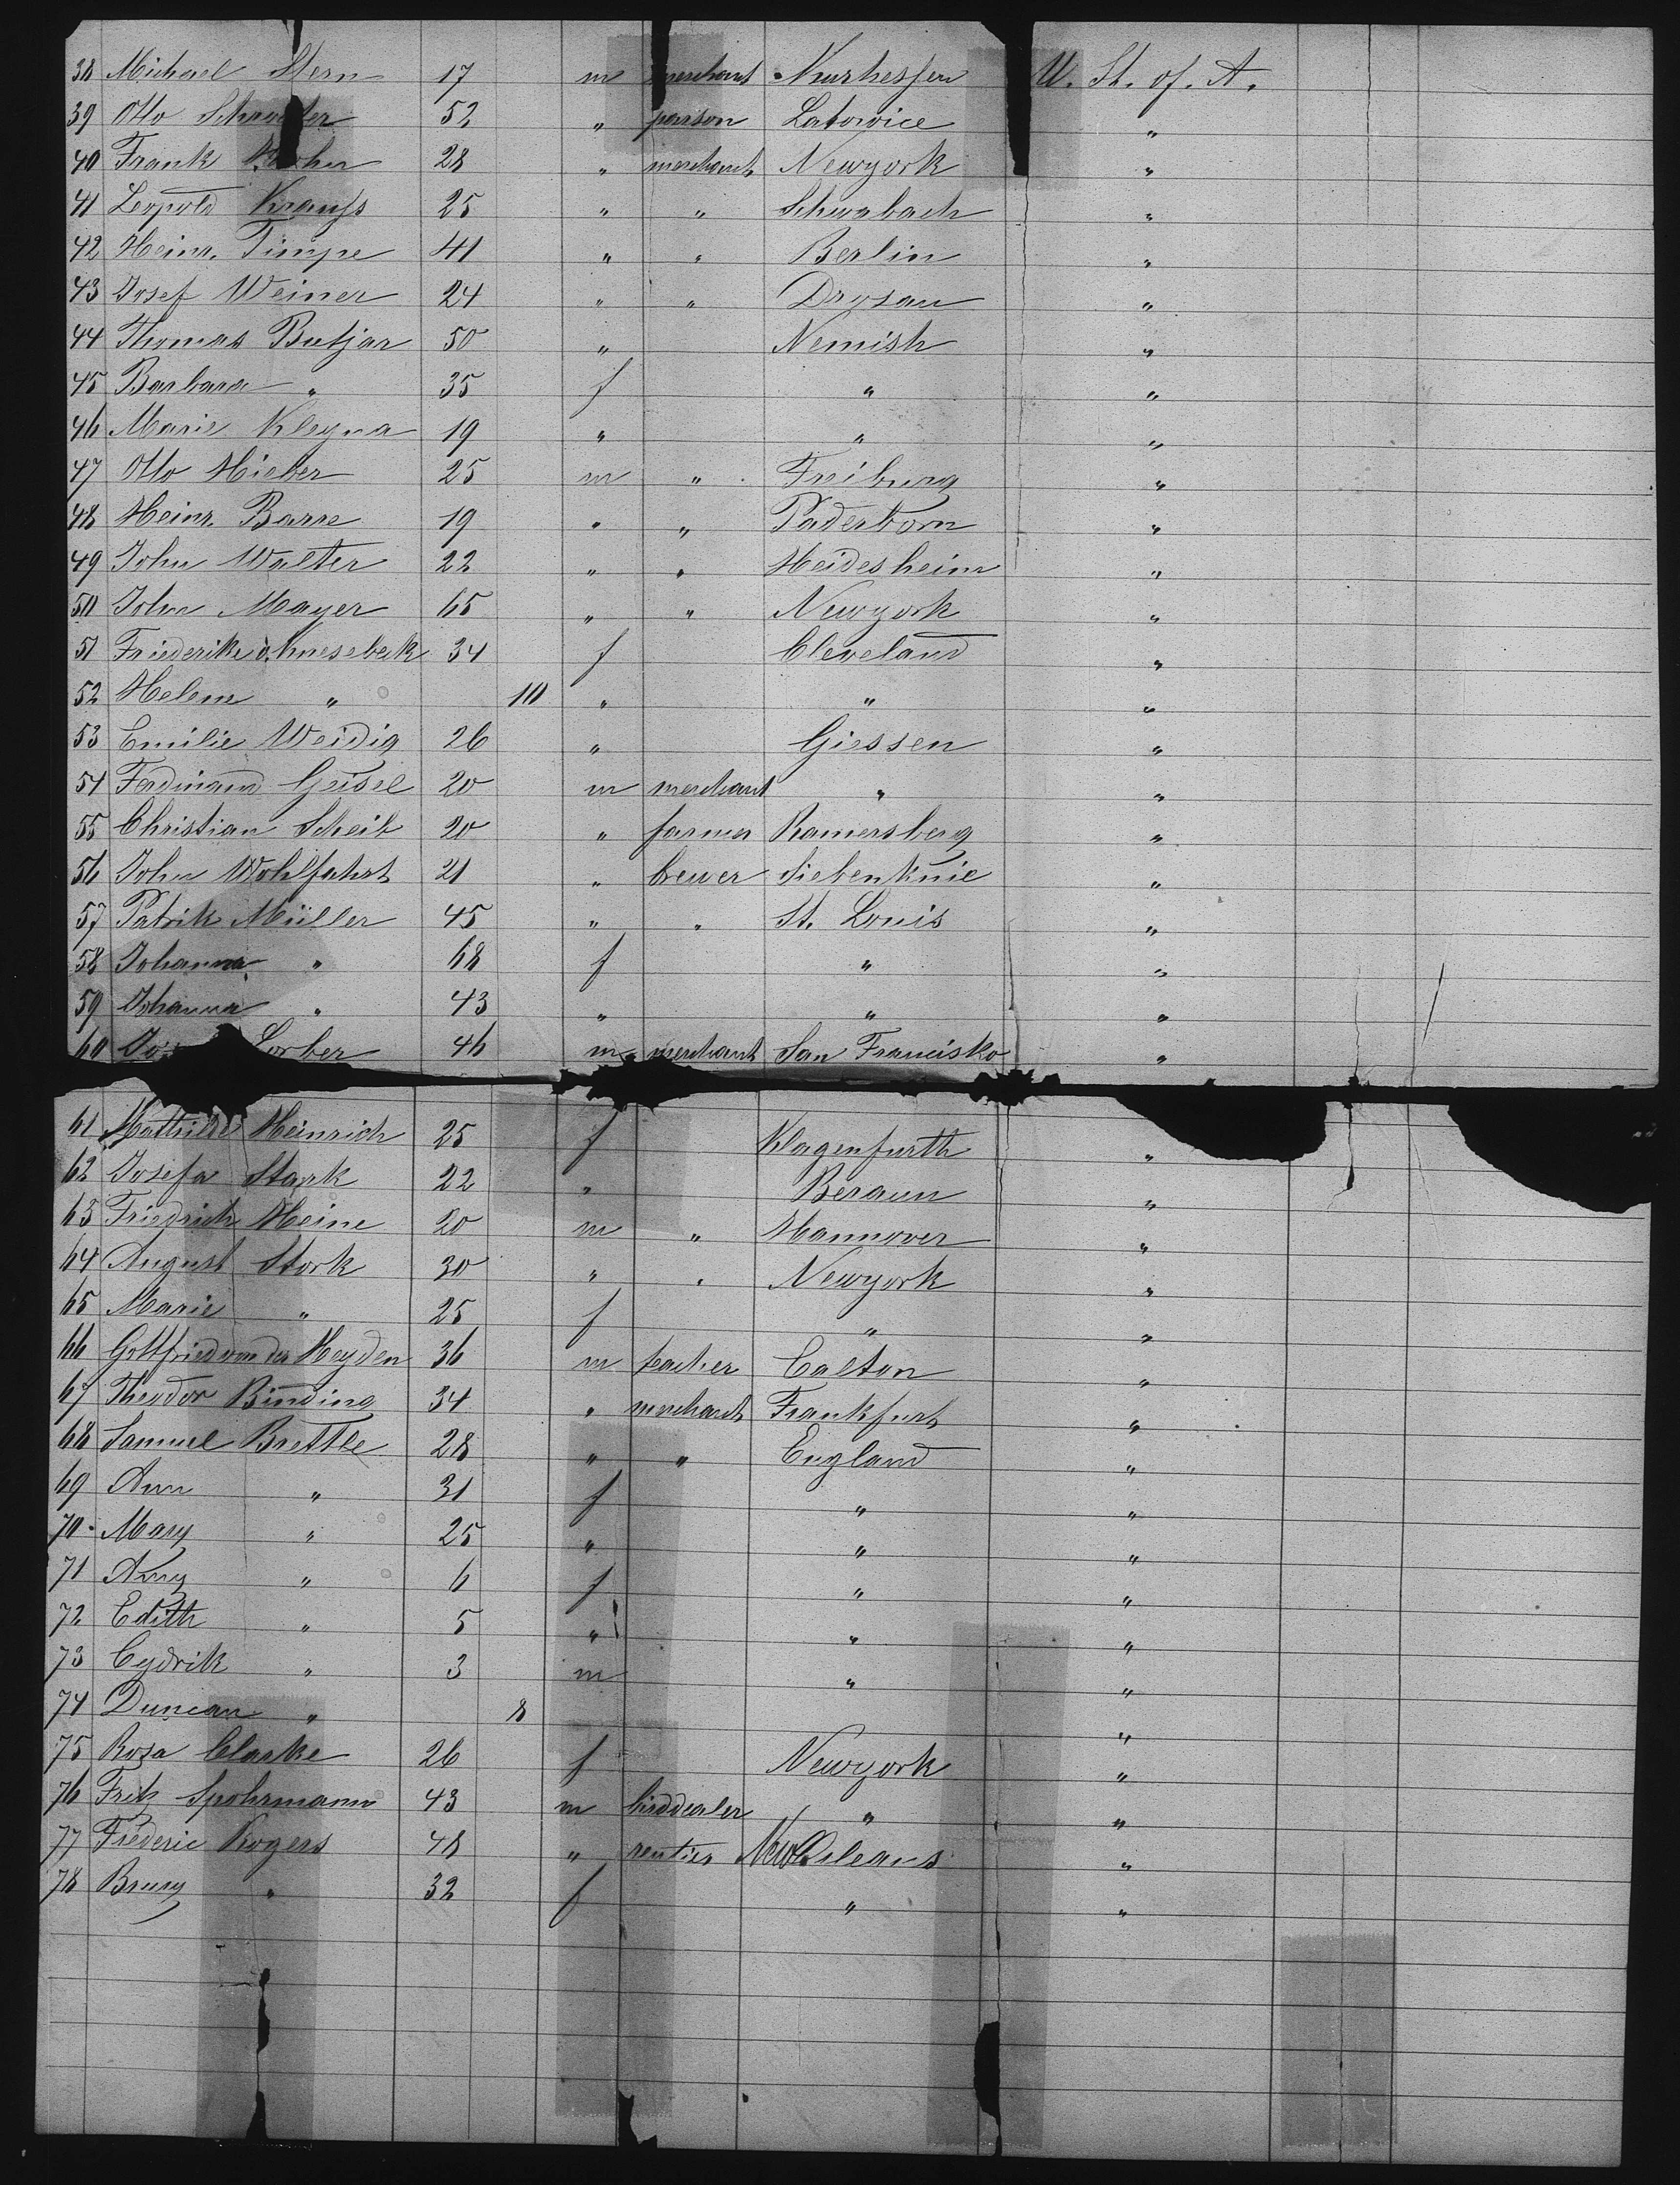 38 Michael Stern 17 m merchant Kurhessen U. St. of. A.
39 Otto 52 " parson Latowice "
40 Frank 28 " merchant Newyork "
41 Leopold Krauss 25 " " Schwabach "
42 Heinr. Timpe 41 " " Berlin "
43 Josef Weiner 24 " " Drosau "
44 Thomas Butjar 50 " Nemish "
45 Barbara " 35 f " "
46 Marie Kleyna 19 " " "
47 Otto Hieber 25 m " Freiburg "
48 Heinr. Barre 19 " " Paderborn "
49 John Walter 22 " " Heidesheim "
50 John Mayer 65 " " Newyork "
51 Friederike v. Knesebeck 34 f Cleveland "
52 Helene " 10 " " "
53 Emilie Weidig 26 " Giessen "
54 Ferdinand Geisel 20 m merchant " "
55 Christian Scheib 20 " farmer Ramersberg "
56 John Wohlfahrt 21 " brewer Siebenknie "
57 Patrik Müller 45 " " St. Louis "
58 Johanna " 68 f " "
59 Johanna " 43 " " "
60 Lorber 46 m merchant San Francisko "
61 Mathilde Heinrich 25 f Klagenfurth "
62 Josefa Stark 22 " Beraun "
63 Friedrich Heine 20 m " Hannover "
64 August Stork 30 " " Newyork "
65 Marie " 25 f " "
66 Gottfried von der Heyden 36 m teacher Calton "
67 Theodor Binding 34 " merchant Frankfurt "
68 Samuel Brettle 28 " " England "
69 Ann " 31 f " "
70 Mary " 25 " " "
71 Amy " 6 f " "
72 Edith " 5 " " "
73 Cydrik " 3 m " "
74 Duncan " 8 "
75 Rosa Clarke 26 f Newyork "
76 Fritz Spohrmann 43 m birddealer " "
77 Frederic Rogers 48 " rentier New Orleans "
78 " 32 f " "